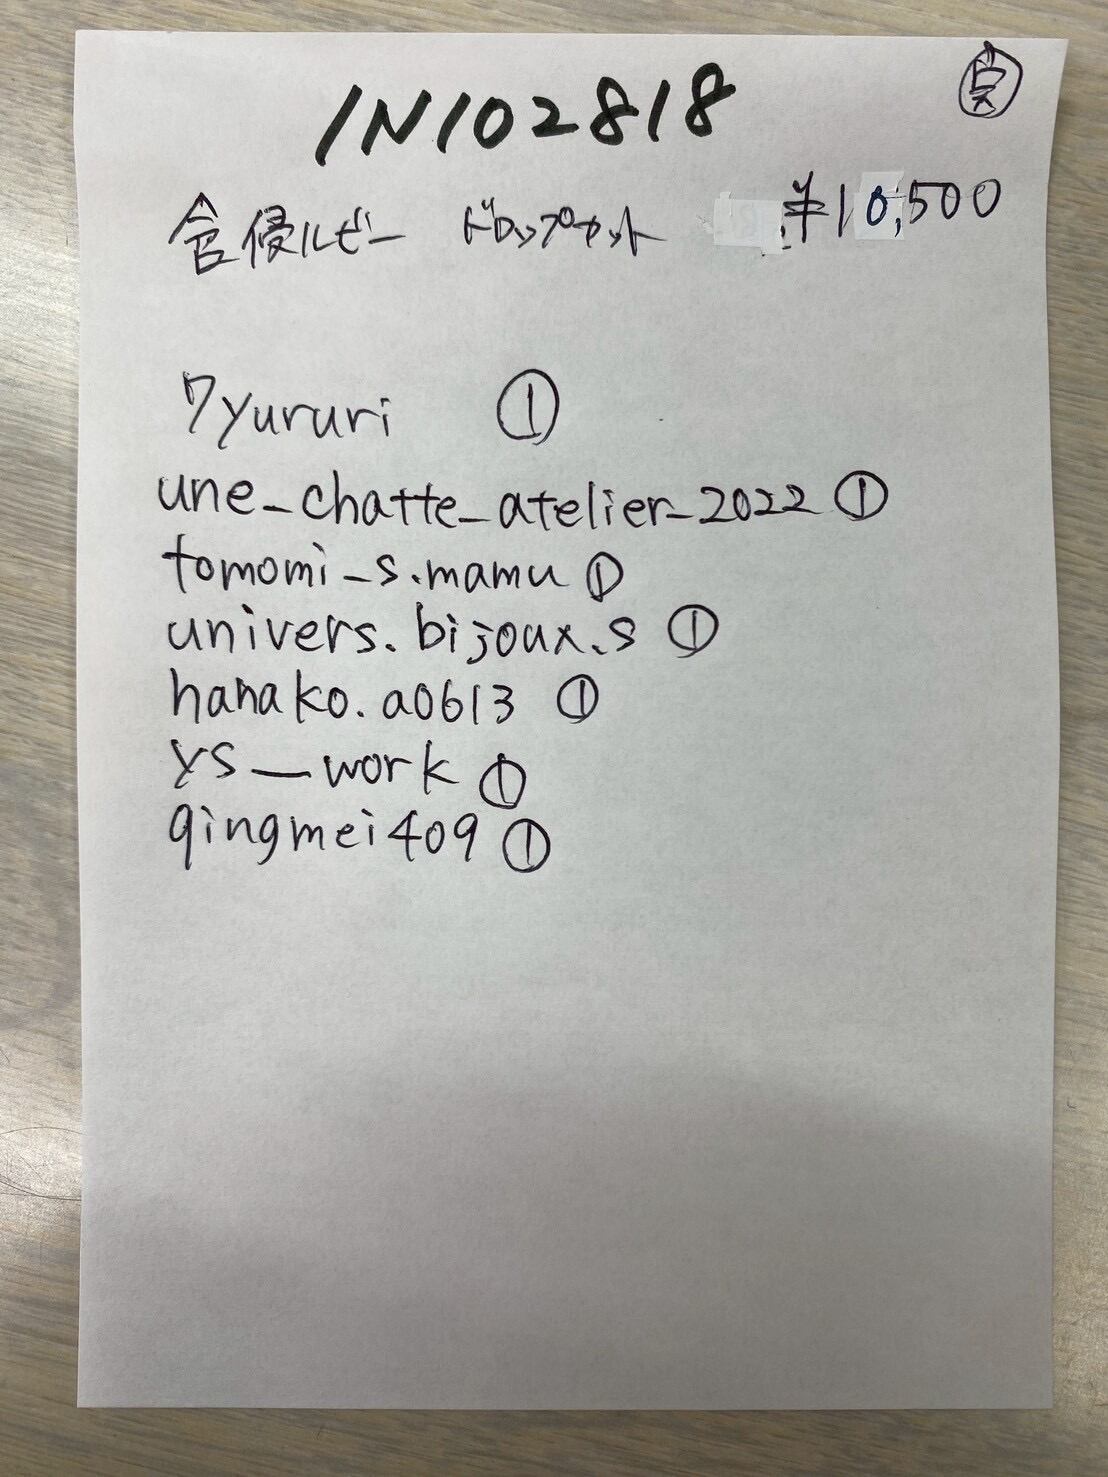 IN102818
含侵ルビー ドロップカット ¥10,500
7yururi ①
une_chatte_atelier_2022 ①
tomomi_s.mamu ①
univers.bijoux.s ①
hanako.a0613 ①
ys__work ①
qingmei409 ①